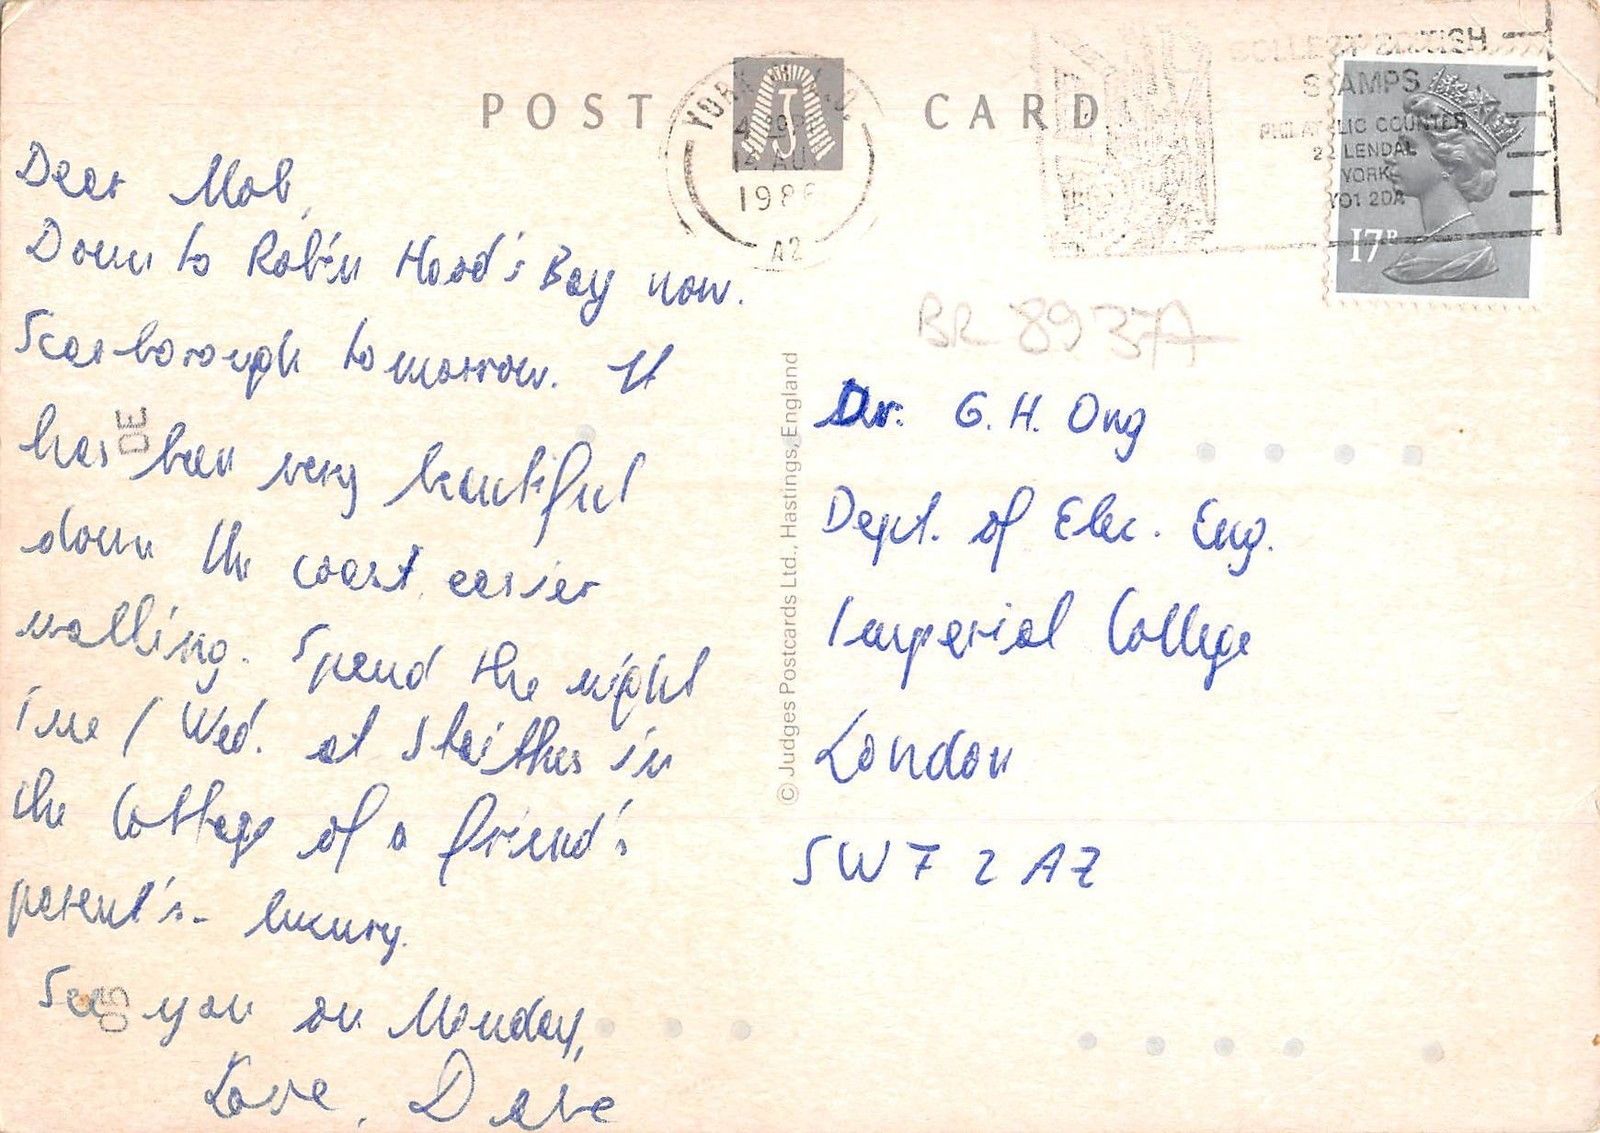 POST CARD
J
YORK
14 AU
1986
A2
COLLECT BRITISH
STAMPS
PHILATELIC COUNTER
22 LENDAL
YORK
YO1 2DA
17P
BR 8937A
Dear Mob,
Down to Robin Hood's Bay now.
Scarborough tomorrow. It
has been very beautiful
down the coast, easier
walking. Spend the night
Tue / Wed. at Staithes in
the Cottage of a friend's
parent's - luxury.
See you on Monday,
Love, Dave
© Judges Postcards Ltd., Hastings, England
Dr. G. H. Ong
Dept. of Elec. Eng.
Imperial College
London
SW7 2AZ